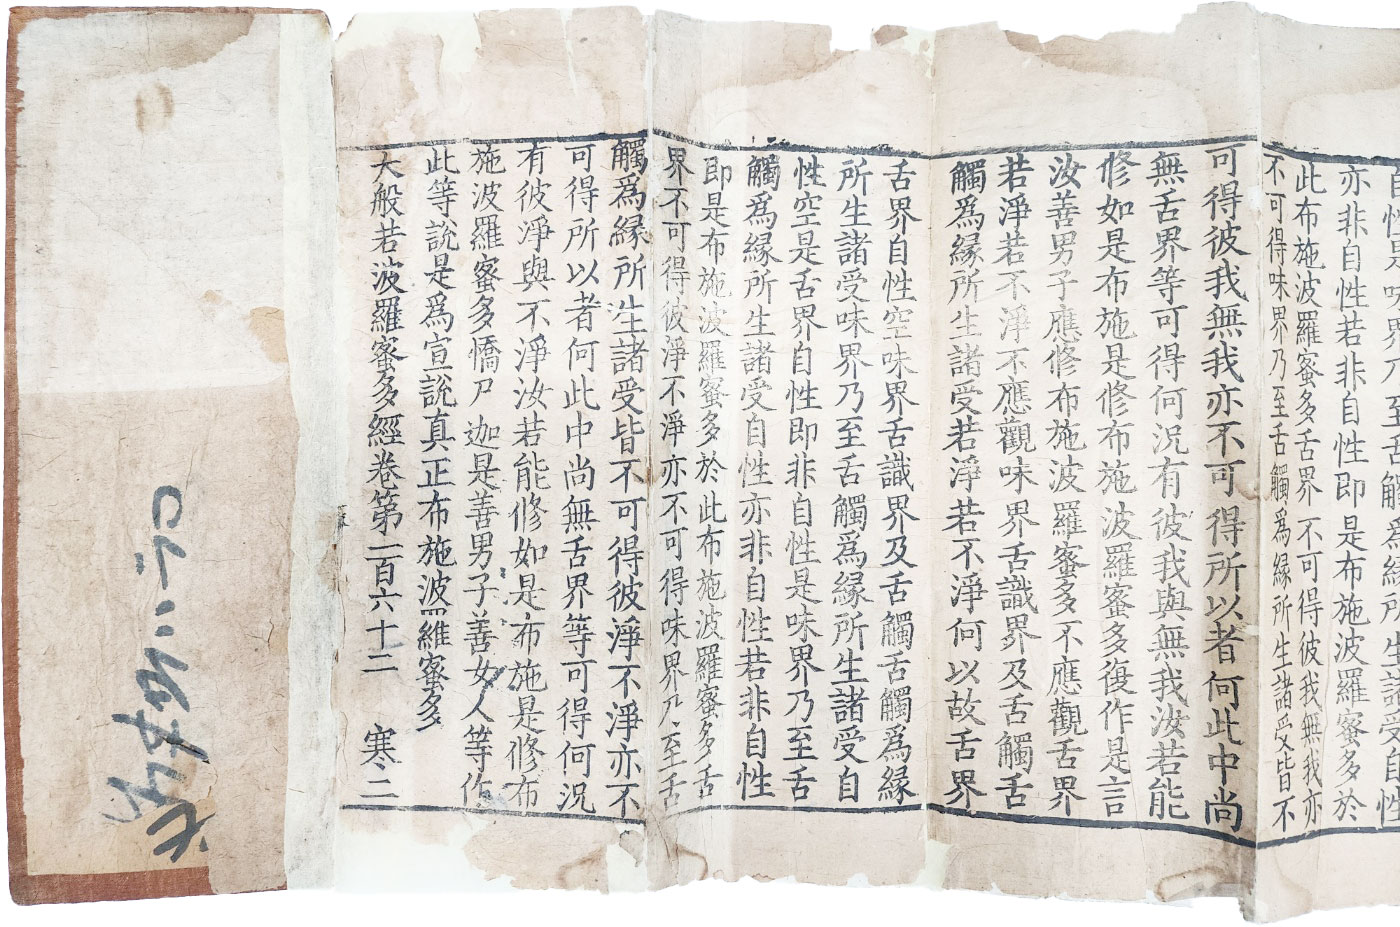 自性是味界乃至舌觸為緣所生諸受自性
亦非自性若非自性即是布施波羅蜜多於
此布施波羅蜜多舌界不可得彼我無我亦
不可得味界乃至舌觸為緣所生諸受皆不
可得彼我無我亦不可得所以者何此中尚
無舌界等可得何況有彼我與無我汝若能
修如是布施是修布施波羅蜜多復作是言
汝善男子應修布施波羅蜜多不應觀舌界
若淨若不淨不應觀味界舌識界及舌觸舌
觸爲緣所生諸受若淨若不淨何以故舌界
舌界自性空味界舌識界及舌觸舌觸爲緣
所生諸受味界乃至舌觸爲緣所生諸受自
性空是舌界自性即非自性是味界乃至舌
觸爲緣所生諸受自性亦非自性若非自性
即是布施波羅蜜多於此布施波羅蜜多舌
界不可得彼淨不淨亦不可得味界乃至舌
觸爲緣所生諸受皆不可得彼淨不淨亦不
可得所以者何此中尚無舌界等可得何況
有彼淨與不淨汝若能修如是布施是修布
施波羅蜜多憍尸迦是善男子善女人等作
此等說是爲宣說真正布施波羅蜜多
大般若波羅蜜多經卷第一百六十二 寒二